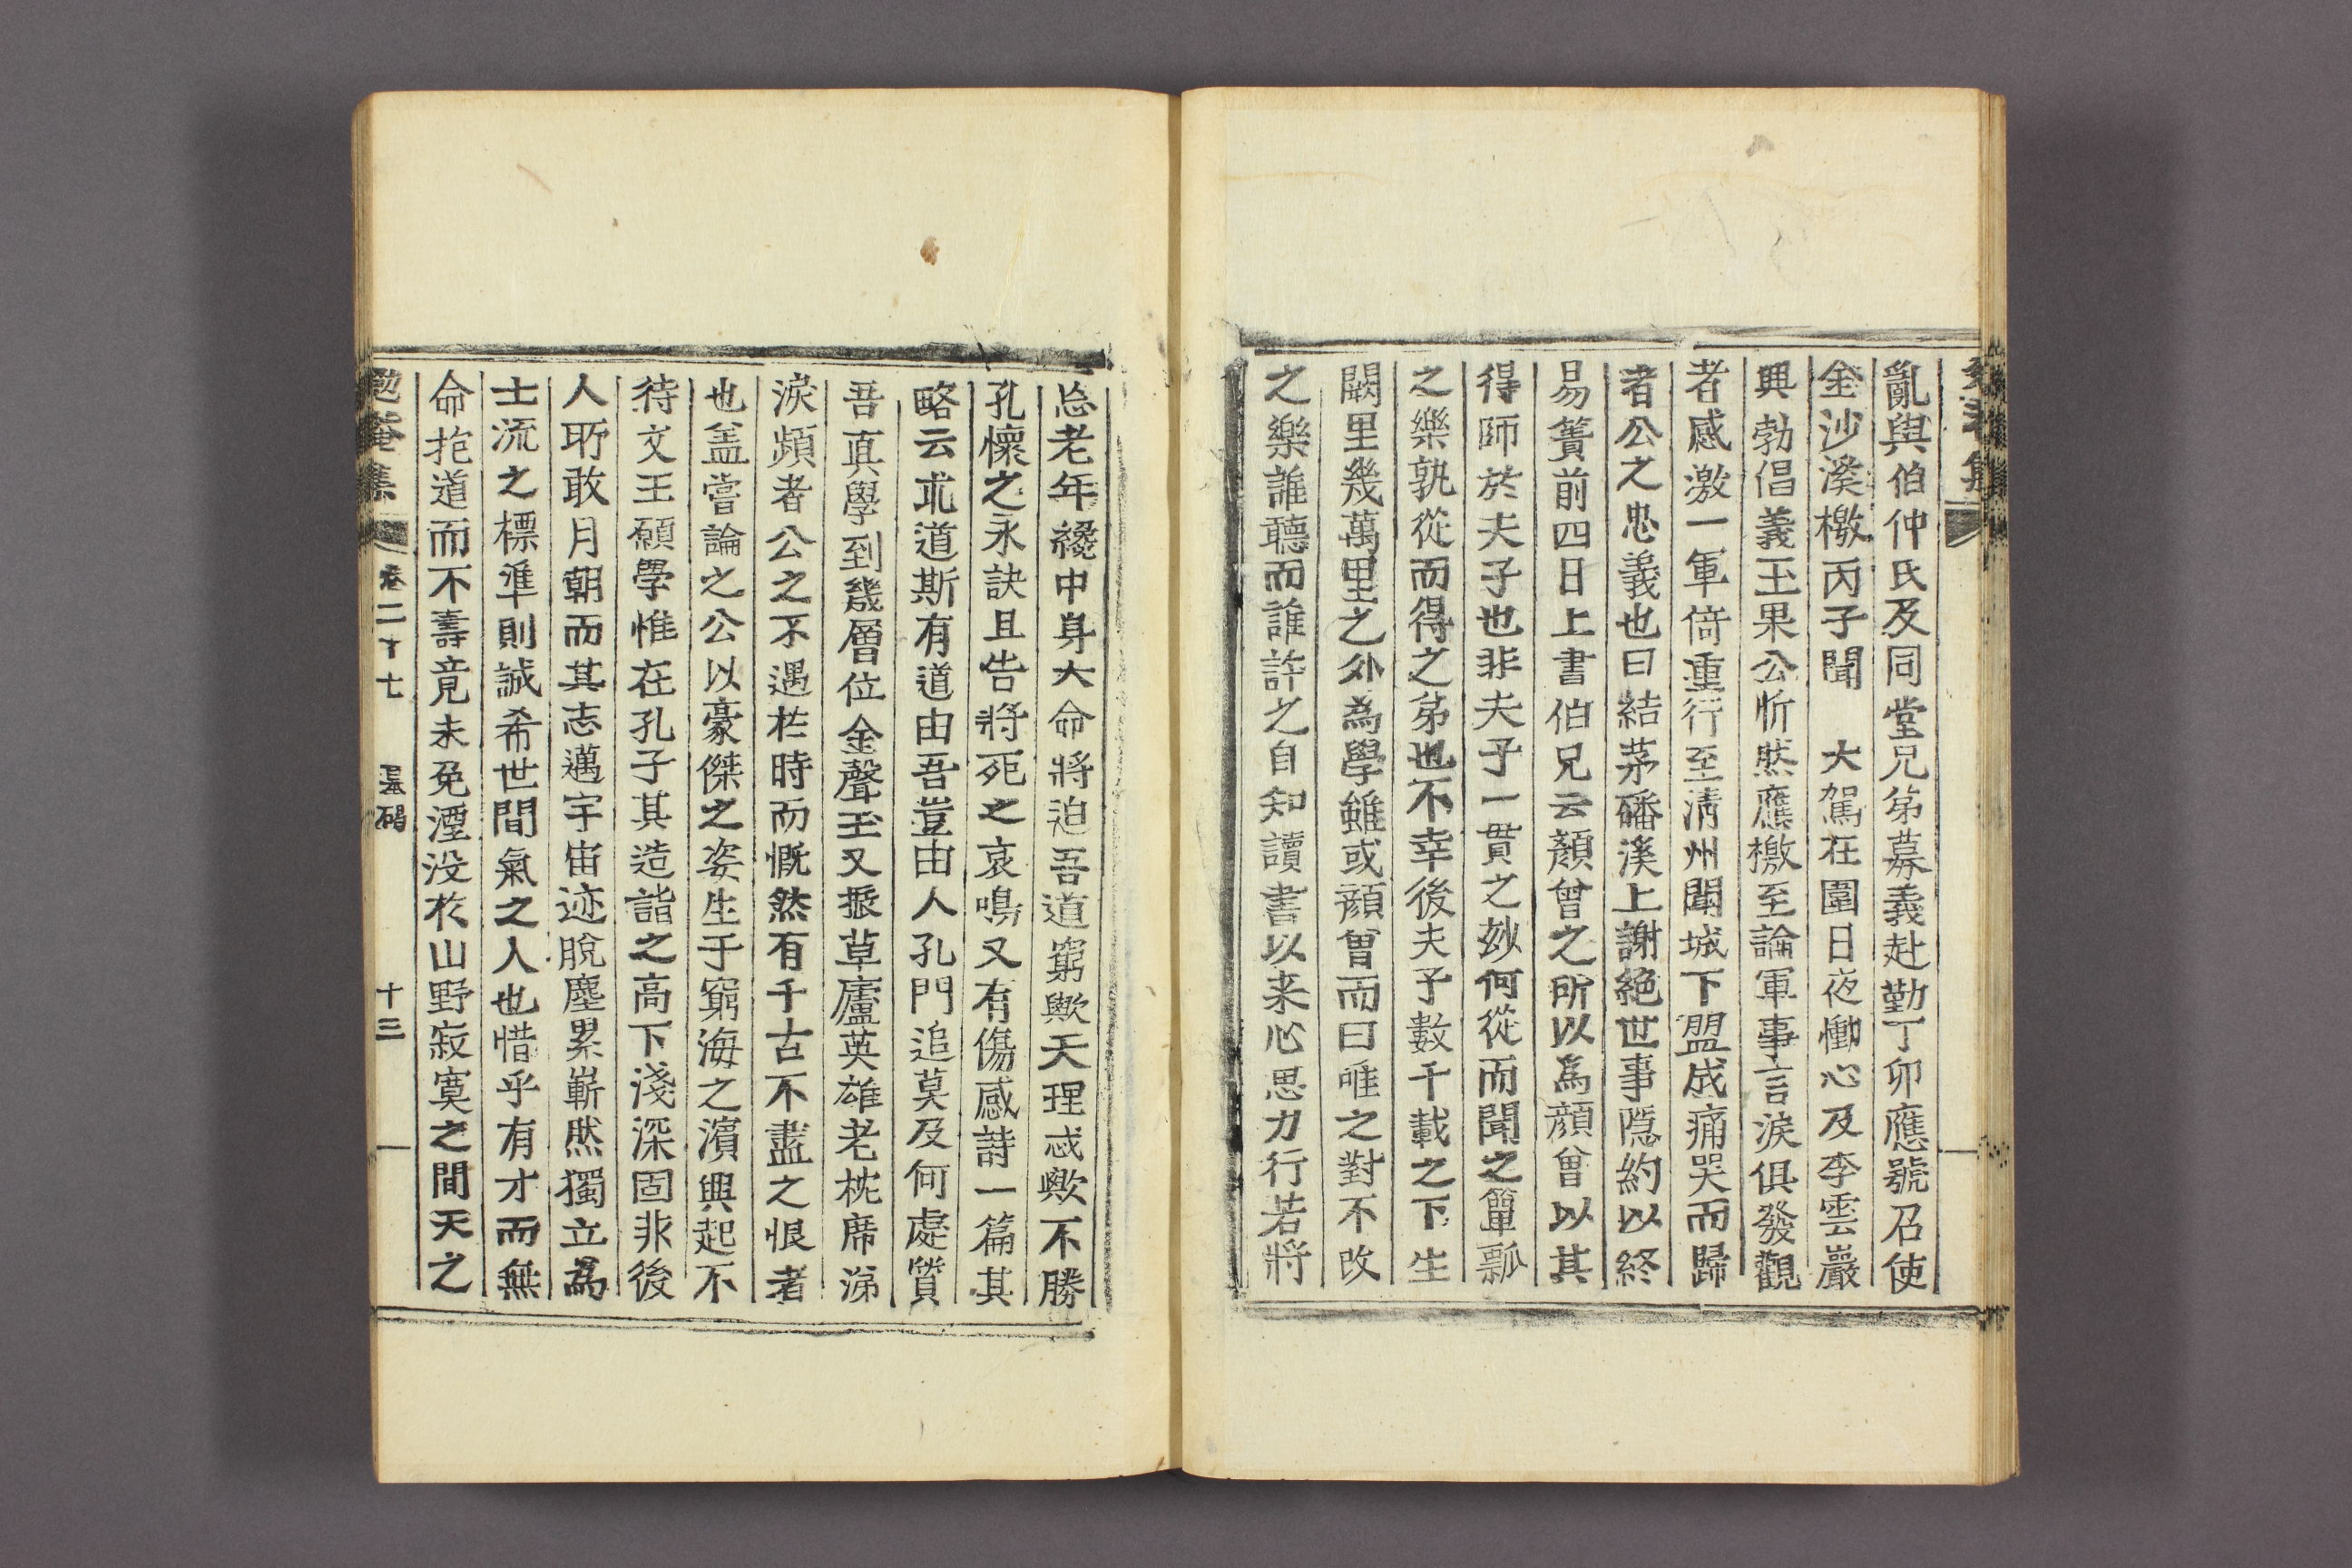 亂與伯仲氏及同堂兄弟募義赴勤丁卯應號召使
金沙溪檄丙子聞　大駕在圍日夜慟心及李雲巖
興勃倡義玉果公忻然應檄至論軍事言淚俱發觀
者感激一軍倚重行至淸州聞城下盟成痛哭而歸
者公之忠義也曰結茅磻溪上謝絶世事隱約以終
易簀前四日上書伯兄云顏曾之所以爲顏曾以其
得師於夫子也非夫子一貫之妙何從而聞之簞瓢
之樂孰從而得之弟也不幸後夫子數千載之下生
闕里幾萬里之外為學雖或顏曾而曰唯之對不改
之樂誰聽而誰許之自知讀書以来心思力行若將
忘老年纔中身大命將迫吾道窮歟天理忒歟不勝
孔懷之永訣且告將死之哀鳴又有傷感詩一篇其
略云求道斯有道由吾豈由人孔門追莫及何處質
吾眞學到幾層位金聲玉又振草廬英雄老枕席涕
淚頻者公之不遇於時而慨然有千古不盡之恨者
也盖嘗論之公以豪傑之姿生于窮海之濱興起不
待文王願學惟在孔子其造詣之高下淺深固非後
人所敢月朝而其志邁宇宙迹脫塵累嶄然獨立爲
士流之標準則誠希世間氣之人也惜乎有才而無
命抱道而不壽竟未免湮没於山野寂寞之間天之
勉菴集 卷二十七 墓碣 十三